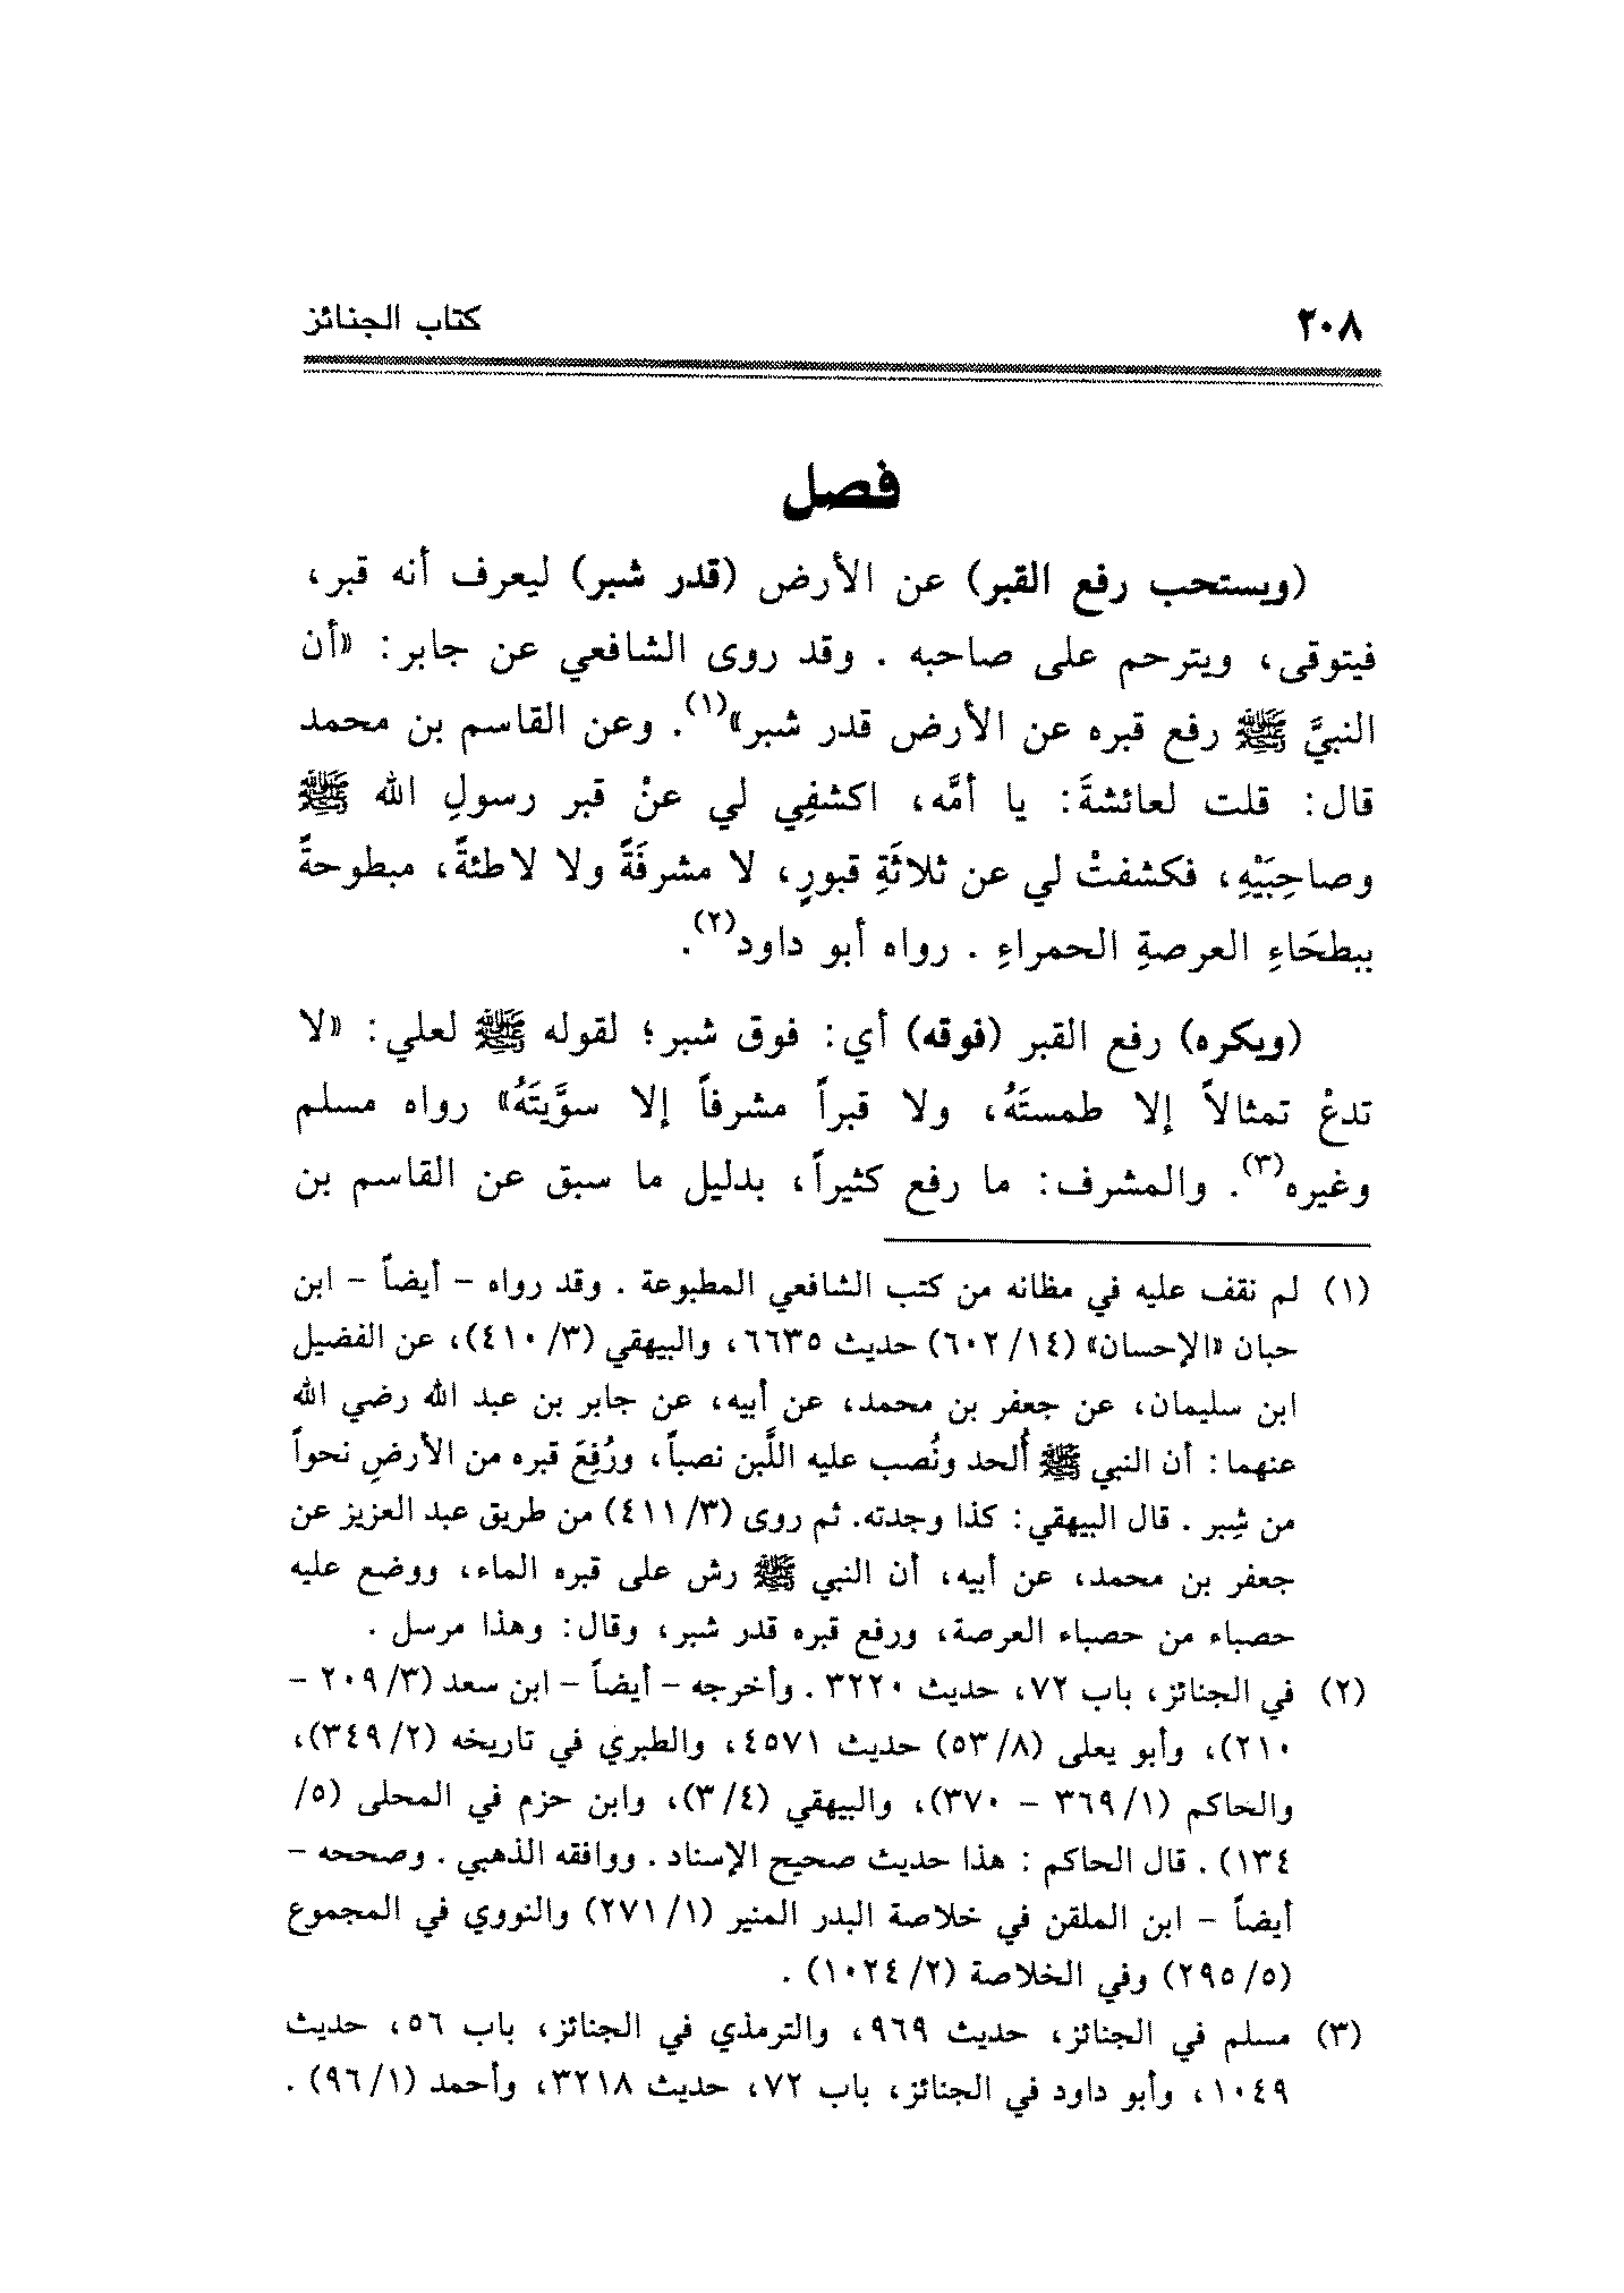 ٢٠٨
كتاب الجنائز
فصل
(ويستحب رفع القبر) عن الأرض (قدر شبر) ليعرف أنه قبر،
فيتوقى، ويترحم على صاحبه . وقد روى الشافعي عن جابر: «أن
النبيَّ ﷺ رفع قبره عن الأرض قدر شبر»(١). وعن القاسم بن محمد
قال: قلت لعائشةَ: يا أمَّه، اكشفِي لي عنْ قبر رسولِ الله ﷺ
وصاحِبَيْهِ، فكشفتْ لي عن ثلاثَةِ قبورٍ، لا مشرفَةً ولا لاطئةً، مبطوحةً
ببطحَاءِ العرصةِ الحمراءِ . رواه أبو داود(٢).
(ويكره) رفع القبر (فوقه) أي: فوق شبر؛ لقوله ﷺ لعلي: «لا
تدعْ تمثالاً إلا طمستَهُ، ولا قبراً مشرفاً إلا سوَّيتَهُ» رواه مسلم
وغيره(٣). والمشرف: ما رفع كثيراً، بدليل ما سبق عن القاسم بن
(١) لم نقف عليه في مظانه من كتب الشافعي المطبوعة . وقد رواه – أيضاً – ابن
حبان «الإحسان» (١٤/ ٦٠٢) حديث ٦٦٣٥، والبيهقي (٣/ ٤١٠)، عن الفضيل
ابن سليمان، عن جعفر بن محمد، عن أبيه، عن جابر بن عبد الله رضي الله
عنهما: أن النبي ﷺ أُلحد ونُصب عليه اللَّبن نصباً، ورُفِعَ قبره من الأرضِ نحواً
من شِبر . قال البيهقي: كذا وجدته. ثم روى (٣/ ٤١١) من طريق عبد العزيز عن
جعفر بن محمد، عن أبيه، أن النبي ﷺ رش على قبره الماء، ووضع عليه
حصباء من حصباء العرصة، ورفع قبره قدر شبر، وقال: وهذا مرسل .
(٢) في الجنائز، باب ٧٢، حديث ٣٢٢٠ . وأخرجه – أيضاً – ابن سعد (٣/ ٢٠٩ –
٢١٠)، وأبو يعلى (٨/ ٥٣) حديث ٤٥٧١، والطبري في تاريخه (٢/ ٣٤٩)،
والحاكم (١/ ٣٦٩ – ٣٧٠)، والبيهقي (٤/ ٣)، وابن حزم في المحلى (٥/
١٣٤) . قال الحاكم : هذا حديث صحيح الإسناد . ووافقه الذهبي . وصححه –
أيضاً – ابن الملقن في خلاصة البدر المنير (١/ ٢٧١) والنووي في المجموع
(٥/ ٢٩٥) وفي الخلاصة (٢/ ١٠٢٤) .
(٣) مسلم في الجنائز، حديث ٩٦٩، والترمذي في الجنائز، باب ٥٦، حديث
١٠٤٩، وأبو داود في الجنائز، باب ٧٢، حديث ٣٢١٨، وأحمد (١/ ٩٦) .